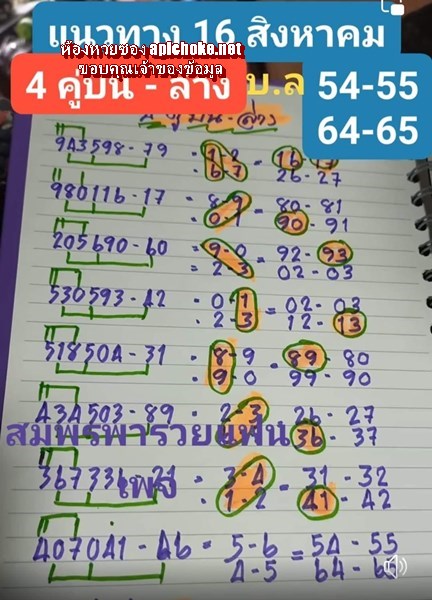 แนวทาง 16 สิงหาคม
ห้องหวยซอง apichoke.net
ขอบคุณเจ้าของข้อมูล
4 คู่บน - ล่าง
บ.ล
54-55
64-65
บน-ล่าง
9A3598-79 = 1-2 = 16-17
6-7 26-27
980116-17 = 8-9 = 80-81
0-1 90-91
205690-60 = 9-0 = 92-93
2-3 02-03
530593-42 = 0-1 = 02-03
2-3 12-13
518504-31 = 8-9 = 89-80
9-0 99-90
434503-89 = 2-3 26-27
36-37
สมพรพารวยแฟน
เพจ
367336-21 = 3-4 = 31-32
1-2 41-42
407041-46 = 5-6 = 54-55
4-5 64-65